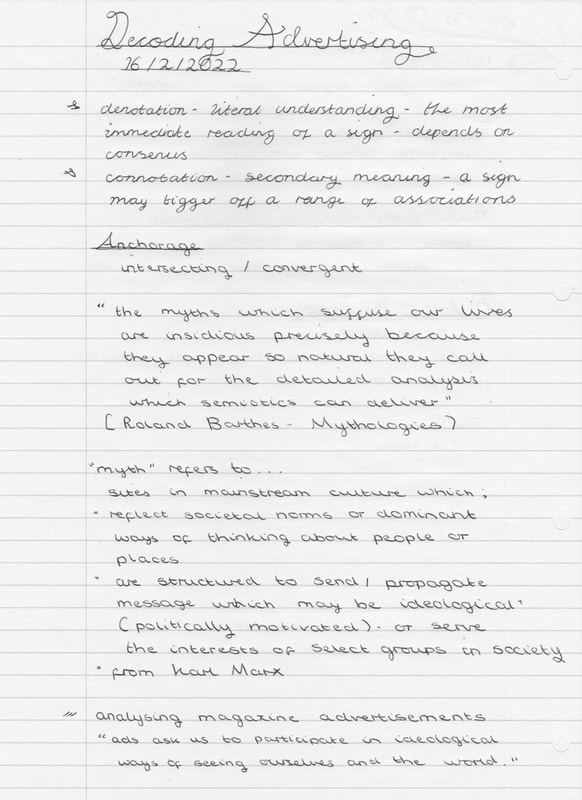 Decoding Advertising.
16/2/2022
denotation - literal understanding - the most
immediate reading of a sign - depends on
consenus
connotation - secondary meaning - a sign
may tigger off a range of associations
Anchorage
intersecting / convergent
"the myths which suffuse our lives
are insidious precisely because
they appear so natural they call
out for the detailed analysis
which semiotics can deliver"
(Roland Barthes - Mythologies)
"myth" refers to...
sites in mainstream culture which;
• reflect societal norms or dominant
ways of thinking about people or
places
• are structured to send / propagate
message which may be ideological'
(politically motivated). or serve
the interests of select groups in society
• from Karl Marx
analysing magazine advertisements
"ads ask us to participate in ideological
ways of seeing ourselves and the world."